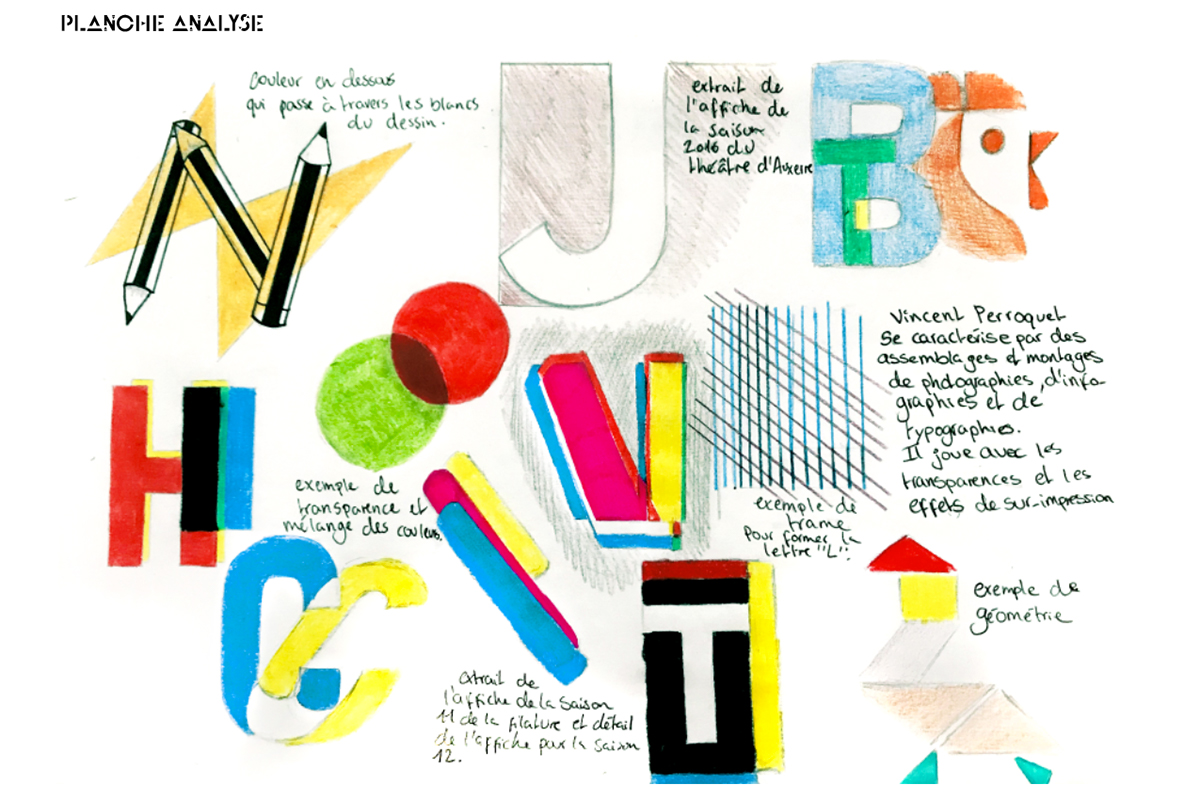 PLANCHE ANALYSE
couleur en dessous
qui passe à travers les blancs
du dessin.
extrait de
l'affiche de
la saison
2016 du
théâtre d'Auxerre
N
J
B
T
Vincent Perroquet
Se caractérise par des
assemblages et montages
de photographies, d'info-
graphies et de
typographies.
Il joue avec les
transparences et les
effets de sur-impression
H
exemple de
transparence et
mélange des couleurs.
exemple de
trame
Pour former la
lettre "L".
exemple de
géométrie
extrait de
l'affiche de la saison
11 de la filature et détail
de l'affiche pour la saison
12.